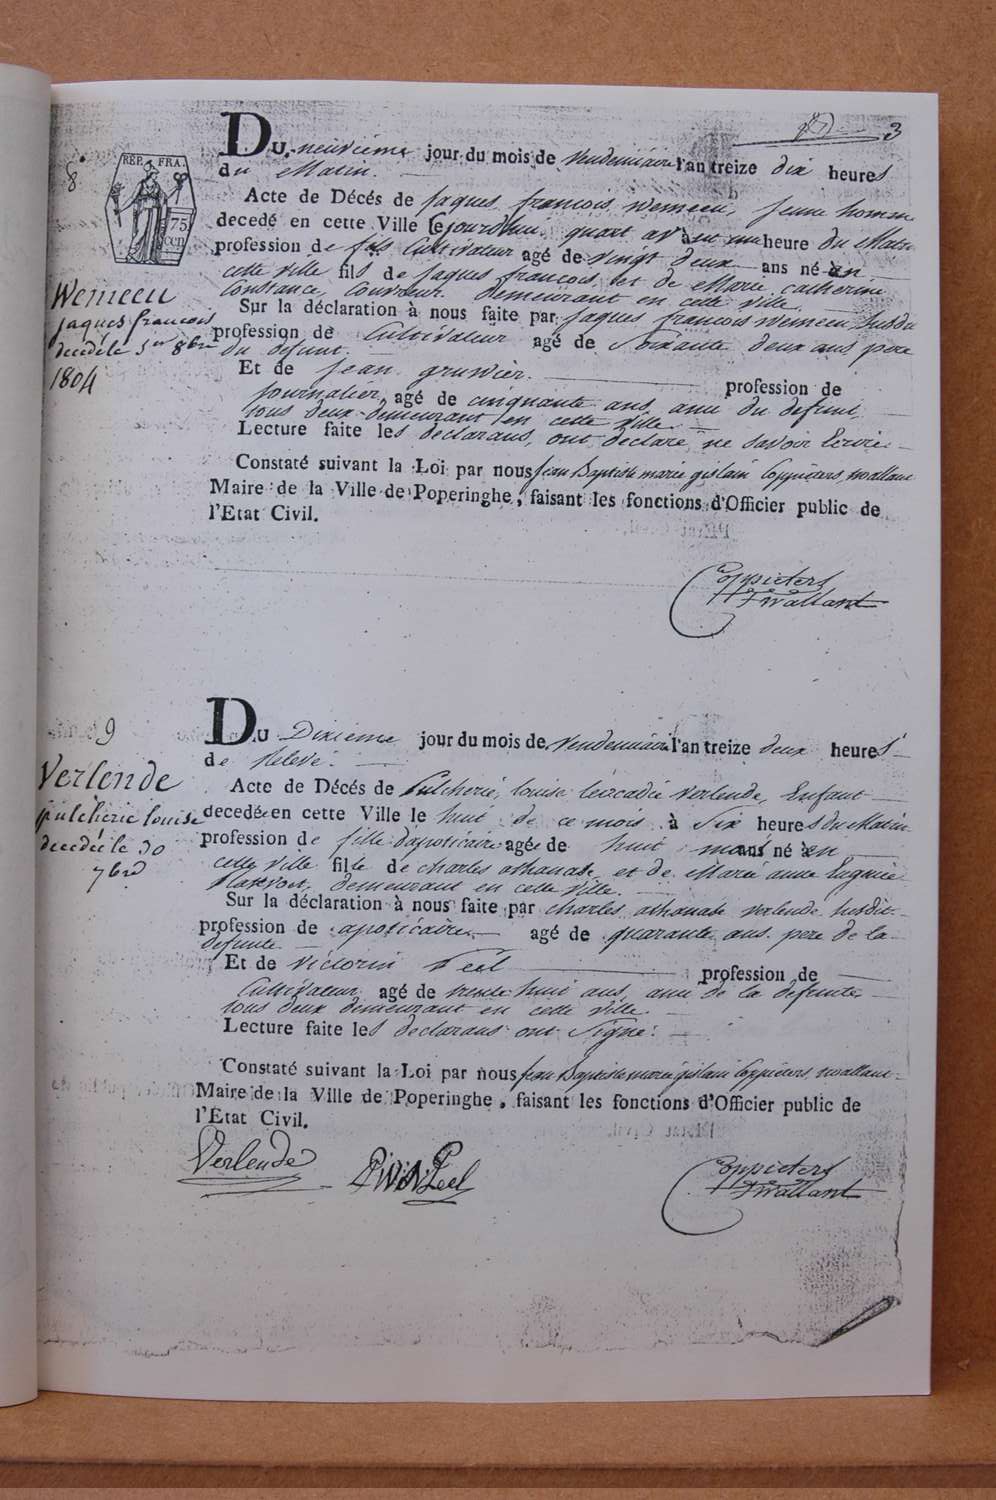 3
8
REP. FRA.
75
CEN
Wemeeu
jaques francois
decedé le 1er 8bre
1804
DU neuvieme jour du mois de vendemiaire l'an treize dix heures
du Matin.
Acte de Décés de jaques francois wemeeu, jeune homme
decedé en cette Ville Cejourdhui quart avant une heure du Matin
profession de fils Cultivateur agé de vingt deux ans né en
cette ville fils de jaques francois, et de Marie catherine
Constance, Couvreur demeurant en cette ville
Sur la déclaration à nous faite par jaques francois wemeeu susdit
profession de Cultivateur agé de soixante deux ans pere
du defunt.
Et de jean gruwier. profession de
journalier, agé de cinquante ans, ami du defunt
tous deux demeurant en cette ville.
Lecture faite les declarans, ont declaré, ne savoir Ecrire
Constaté suivant la Loi par nous jean Baptiste marie gislain Coppieters twallant
Maire de la Ville de Poperinghe, faisant les fonctions d'Officier public de
l'Etat Civil.
Coppieters
Twallant
9
Verlende
pulcherie louise
decedée le 30
7bre
DU Dixieme jour du mois de vendemiaire l'an treize deux heures
de Relevé.
Acte de Décés de Pulcherie, louise leocadie verlende, Enfant
decedée en cette Ville le huit de ce mois à Six heures du Matin
profession de fille d'apoticaire agée de huit mois né en
cette ville fille de charles athanase et de Marie anne Eugenie
demeurant en cette ville.
Sur la déclaration à nous faite par charles athanase verlende susdit
profession de apoticaire agé de quarante ans. pere de la
defunte
Et de victorin Peel profession de
Cultivateur agé de trente huit ans, ami de la defunte,
tous deux demeurant en cette ville
Lecture faite les declarans ont signé.
Constaté suivant la Loi par nous jean Baptiste marie gislain Coppieters twallant
Maire de la Ville de Poperinghe, faisant les fonctions d'Officier public de
l'Etat Civil.
Verlende
Peel
Coppieters
Twallant